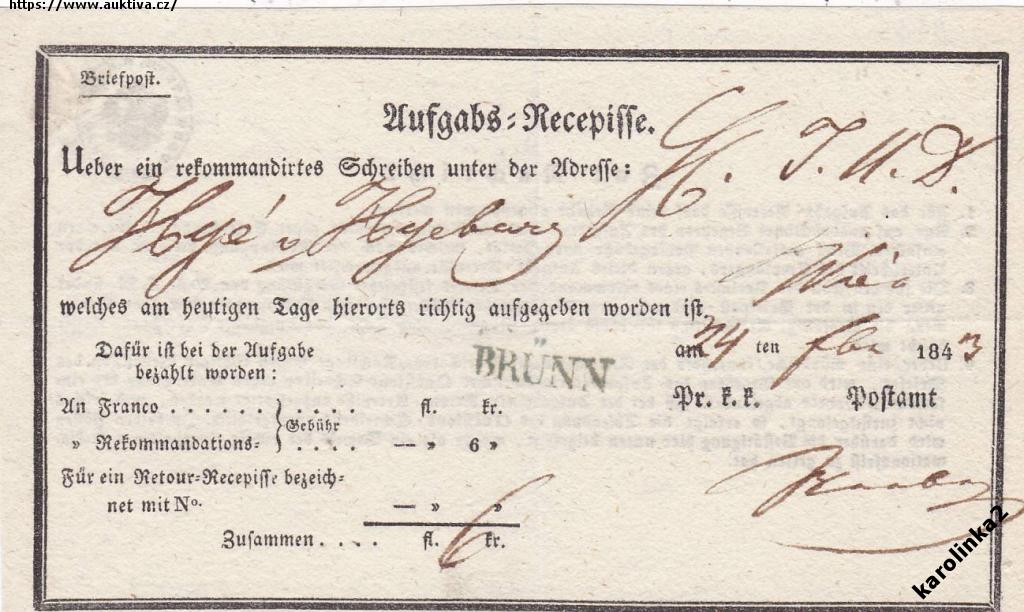 https://www.auktiva.cz/
Briefpost.
Aufgabs-Recepisse.
Ueber ein rekommandirtes Schreiben unter der Adresse: H. J. U. D.
Hyé v Hyeburg
Wien
welches am heutigen Tage hierorts richtig aufgegeben worden ist,
Dafür ist bei der Aufgabe
bezahlt worden:
BRÜNN
am 24 ten 1843
Pr. k. k. Postamt
An Franco . . . . . . . } Gebühr . . . . fl. kr.
" Rekommandations- . . . . — " 6 "
Für ein Retour-Recepisse bezeich-
net mit No. — " "
Zusammen . . . . fl. 6 kr.
karolinka2